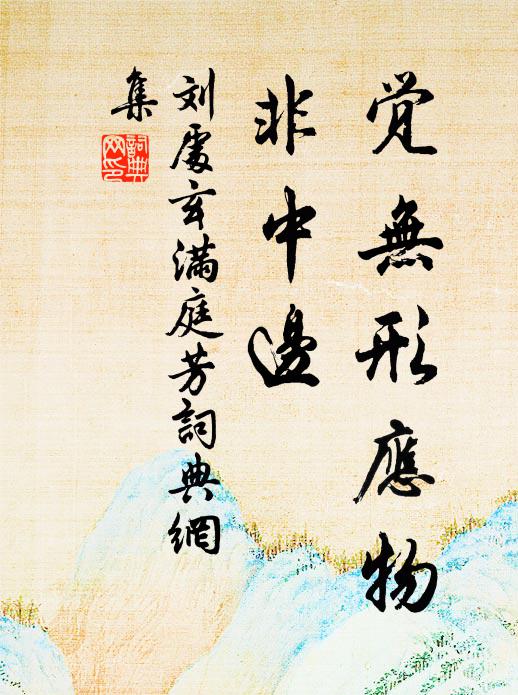 覚無形應物
非中邊
刘處玄满庭芳詞典網
集
詞典網印